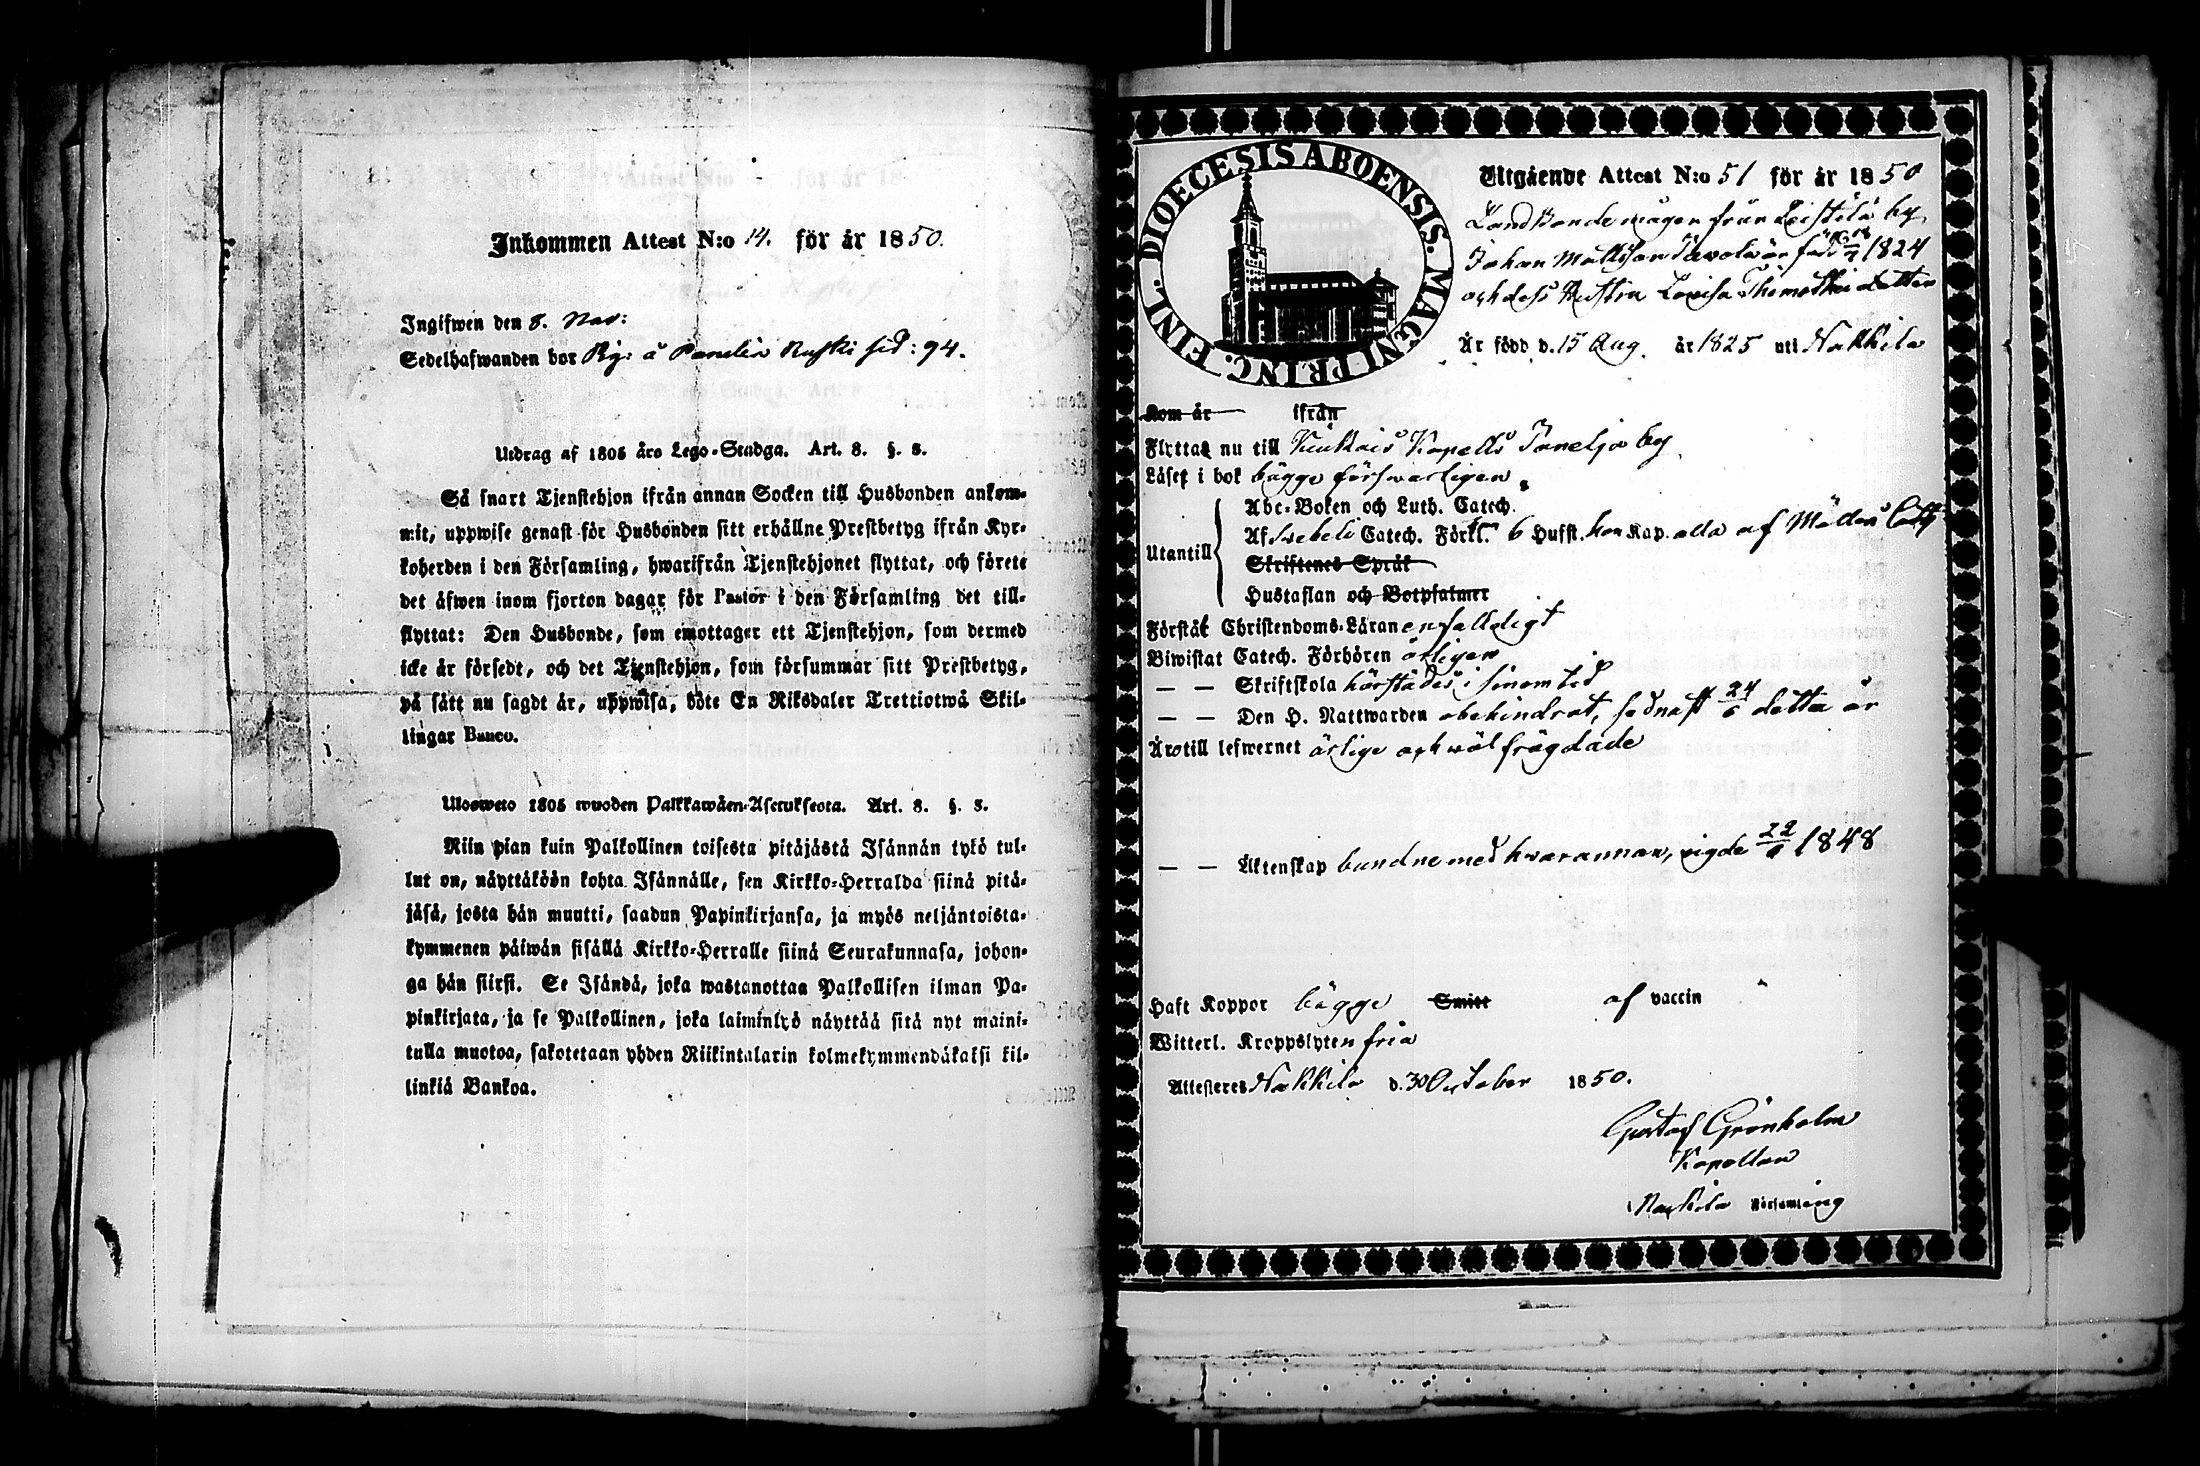 Inkommen Attest N:o 14. för år 1850.
Ingifwen den 8. Nov:
Sedelhafwanden bor å sid: 94.
Utdrag af 1805 års Lego-Stadga. Art. 8. §. 3.
Så snart Tjenstehjon ifrån annan Socken till Husbonden ankom-
mit, uppwise genast för Husbonden sitt erhållne Prestbetyg ifrån Kyr-
koherden i den Församling, hwarifrån Tjenstehjonet flyttat, och förete
det äfwen inom fjorton dagar för Pastor i den Församling det till-
flyttat: Den Husbonde, som emottager ett Tjenstehjon, som dermed
icke är försedt, och det Tjenstehjon, som försummar sitt Prestbetyg,
på sätt nu sagdt är, uppwisa, böte En Riksdaler Trettiotwå Skil-
lingar Banco.
Ulosweto 1805 wuoden Palkkawäen-Asetuksesta. Art. 8. §. 3.
Niin pian kuin Palkollinen toisesta pitäjästä Isännän tykö tul-
lut on, näyttäköön kohta Isännälle, sen Kirkko-Herralda siinä pitä-
jäsä, josta hän muutti, saadun Papinkirjansa, ja myös neljäntoista-
kymmenen päiwän sisällä Kirkko-Herralle siinä Seurakunnasa, johon-
ga hän siirsi. Se Isändä, joka wastanottaa Palkollisen ilman Pa-
pinkirjata, ja se Palkollinen, joka laiminlyö näyttää sitä nyt maini-
tulla muotoa, sakotetaan yhden Riikintalarin kolmekymmendäkaksi kil-
linkiä Bankoa.
DIOECESIS ABOENSIS. MAGNI PRINC. FINL.
Utgående Attest N:o 51 för år 1850
Landbonde mågen från Leistilä by
Johan Mattsson född 1824
och dess Hustru Lovisa Thimothei dotter
Är född d. 15 Aug. år 1825 uti Nakkila
Kom år ifrån
Flyttas nu till Kiukais Kapells Paneljo by
Läser i bok bägge förswarligen
Abc-Boken och Luth. Catech.
Utantill
Af Swebeli Catech. Förkl. 6 Hufst. hon Kap. alla af Möllers
Skriftenes Språk
Hustaflan och Botpsalmer
Förstår Christendoms-Läran enfaldigt
Biwistat Catech. Förhören årligen
— — Skriftskola härstädes i sinom tid
— — Den H. Nattwarden obehindrat, sednast 24/6 detta år
Äro till lefwernet ärlige och wälfrägdade
— — Äktenskap bundne med hvarannan, vigde 1848
Haft Koppor bägge Smitt af vaccin
Witterl. Kroppslyten fria
Attesteres Nakkila d. 30 October 1850.
Gustaf Grönholm
Kapellan
Nakkila Församling